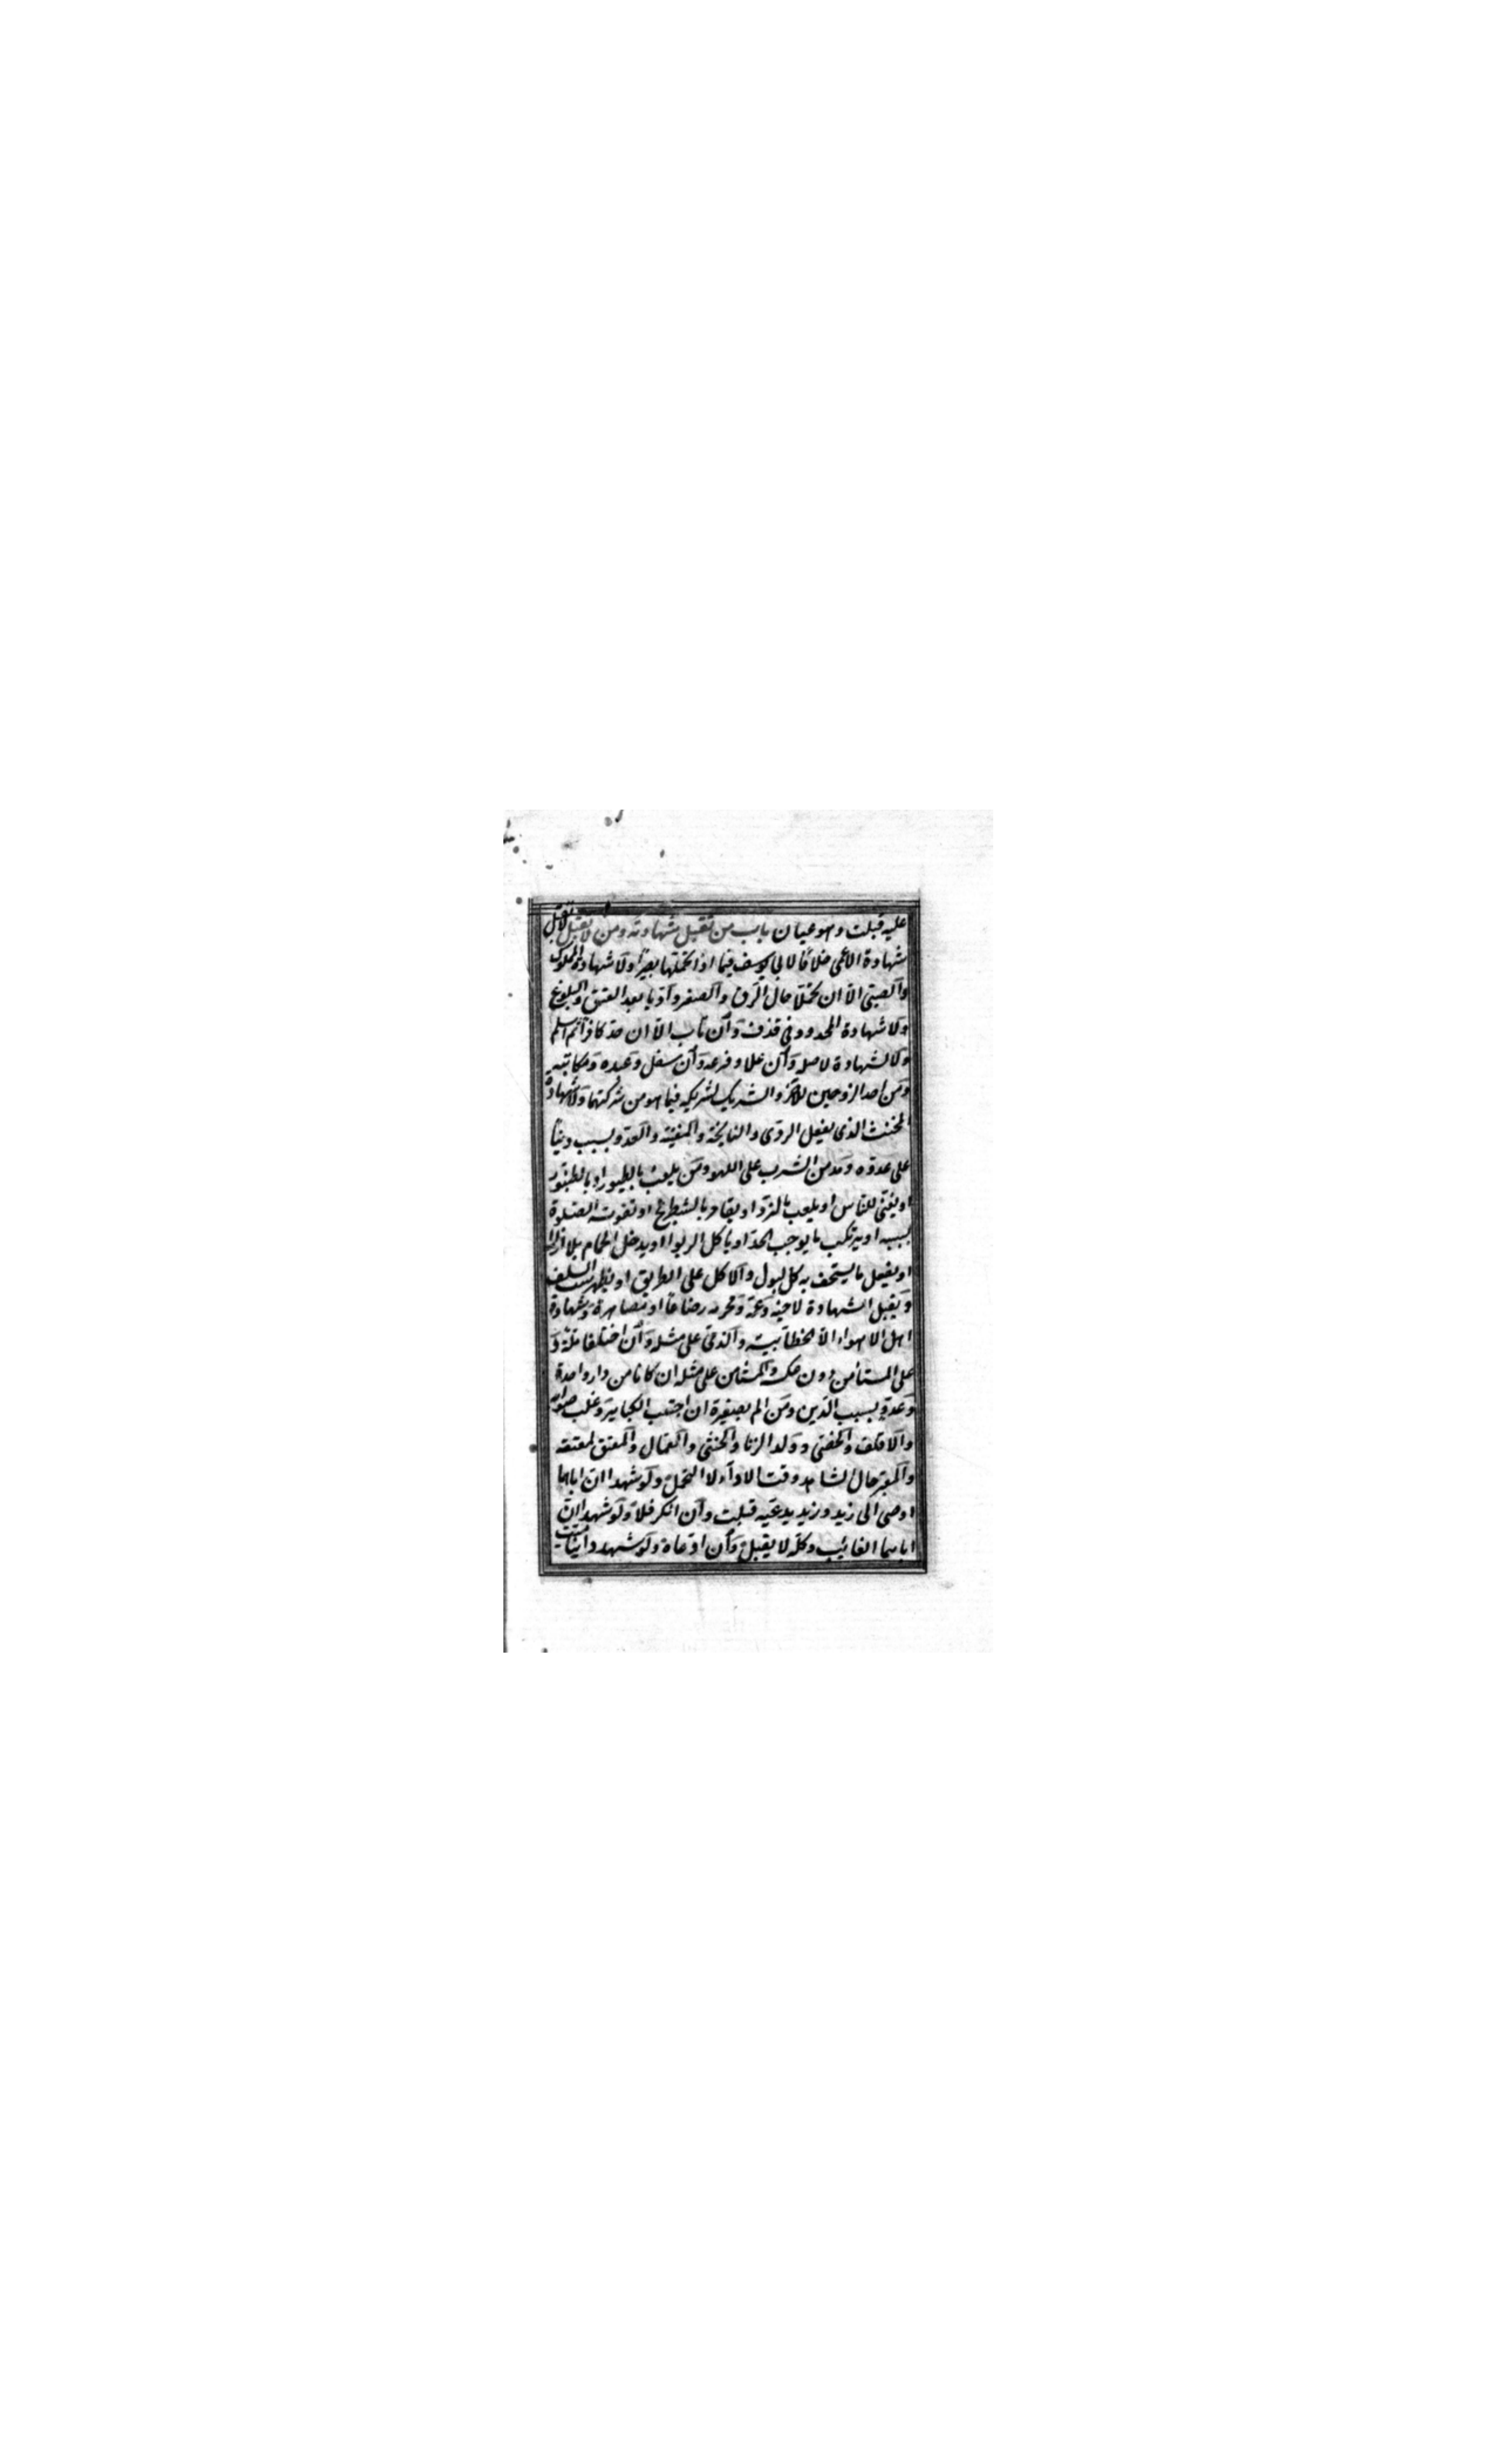 عليه قبلت وهو عيان باب من تقبل شهادته ومن لا يقبل لا تقبل
شهادة الاعمى خلافًا لابى يوسف فيما اذا تحملها بصيرًا ولا شهادة المملوك
والصبىّ الاّ ان تحملا حال الرق والصغر وادّيا بعد العتق والبلوغ
ولا شهادة المحدود فى قذف وان تاب الاّ ان حدّ كافرًا ثم اسلم
ولا الشهادة لاصله وان علا وفرعه وان سفل وعبده ومكاتبه
ومن احد الزوجين للآخر والشريك لشريكه فيما هو من شركتهما ولا شهادة
المخنث الذى يفعل الردى والنايحة والمغنية والعدو بسبب دنيا
على عدوّه ومدمن الشرب على اللهو ومن يلعب بالطيور او بالطنبور
او يغنّى للناس او يلعب بالنرد او يقامر بالشطرنج او تفوته الصلوة
بسببه او يرتكب ما يوجب الحدّ او ياكل الربوا او يدخل الحمام بلا ازار
او يفعل ما يستخف به كالبول والاكل على الطريق او يظهر سبّ السلف
وتقبل الشهادة لاخيه وعمّه ومحرمه رضاعًا او مصاهرة وشهادة
اهل الاهواء الاّ الخطابية والذمى على مثله وان اختلفا ملّة و
على المستأمن دون عكسه والمستأمن على مثله ان كانا من دار واحدة
وعدوّ بسبب الدّين ومن المّ بصغيرة ان اجتنب الكبائر وغلب صوابه
والاقلف والخصى وولد الزنا والخنثى والعمال والمعتق لمعتقه
والمعتبر حال الشاهد وقت الاداء لا التحمل ولو شهدا انّ اباهما
اوصى الى زيد وزيد يدعيه قبلت وان انكر فلا ولو شهدا انّ
اباهما الغائب وكله لا يقبل وان ادّعاه ولو شهد داينا ميّت